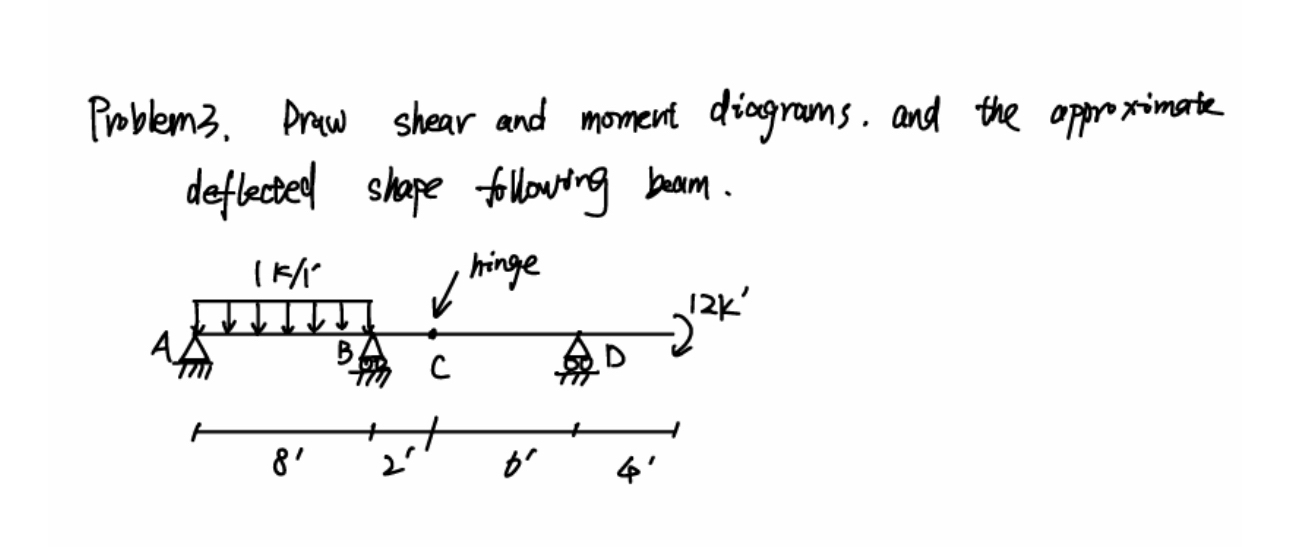 Problem3. Draw shear and moment diagrams. and the approximate
deflected shape following beam.
1 K/1'
hinge
12K'
A
B
C
D
8'
2'
6'
4'